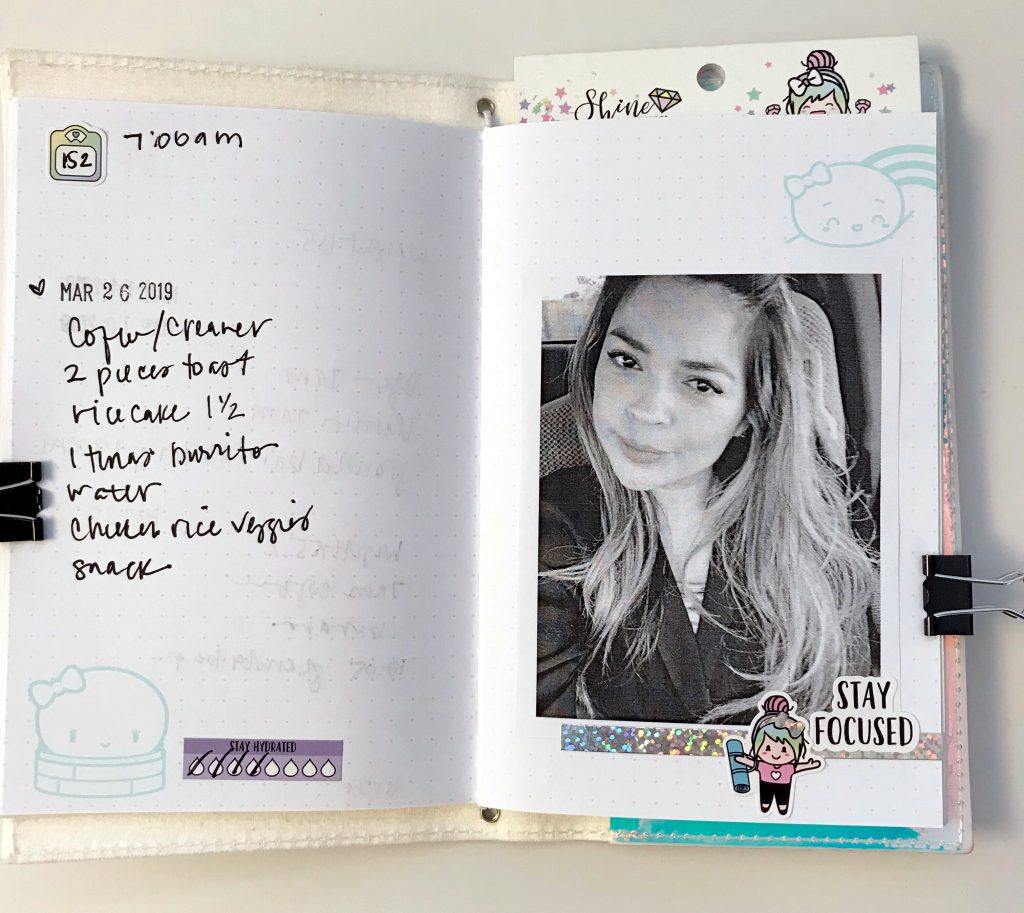 152 7:00am
MAR 26 2019
Cof w/creamer
2 pieces toast
rice cake 1 1/2
1 tinas burrito
water
chicken rice veggies
snack
STAY HYDRATED
Shine
STAY
FOCUSED